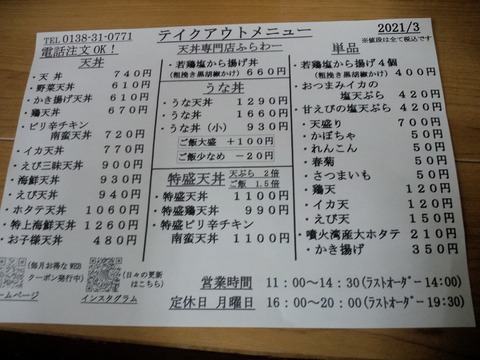 TEL 0138-31-0771
電話注文OK！
テイクアウトメニュー
天丼専門店ふらわー
2021/3
※値段は全て税込です
天丼
・天丼 740円
・野菜天丼 610円
・かき揚げ天丼 610円
・鶏天丼 670円
・ピリ辛チキン
南蛮天丼 720円
・イカ天丼 770円
・えび三昧天丼 900円
・海鮮天丼 930円
・えび天丼 940円
・ホタテ天丼 1060円
・特上海鮮天丼 1260円
・お子様天丼 480円
・若鶏塩から揚げ丼
(粗挽き黒胡椒かけ) 660円
うな丼
・うな天丼 1290円
・うな丼 1660円
・うな丼（小） 930円
ご飯大盛 ＋100円
ご飯少なめ －20円
特盛天丼
天ぷら 2倍
ご飯 1.5倍
・特盛天丼 1100円
・特盛鶏天丼 990円
・特盛ピリ辛チキン
南蛮天丼 1100円
単品
・若鶏塩から揚げ4個
(粗挽き黒胡椒かけ) 400円
・おつまみイカの
塩天ぷら 420円
・甘えびの塩天ぷら 420円
・天盛り 700円
・かぼちゃ 50円
・れんこん 50円
・春菊 50円
・さつまいも 50円
・鶏天 120円
・イカ天 120円
・えび天 150円
・噴火湾産大ホタテ 210円
・かき揚げ 350円
(毎月お得なWEB
クーポン発行中)
ームページ
(日々の更新
はこちら)
インスタグラム
営業時間 11：00～14：30(ラストオーダー14:00)
定休日 月曜日 16：00～20：00(ラストオーダー19:30)